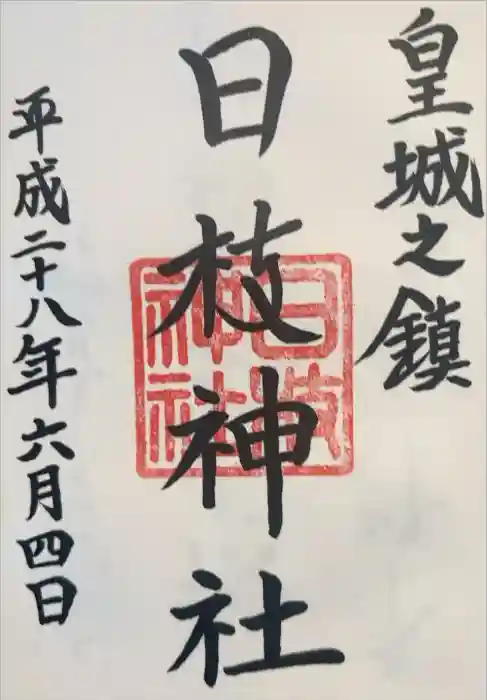 皇城之鎮
日枝神社
日枝神社
平成二十八年六月四日